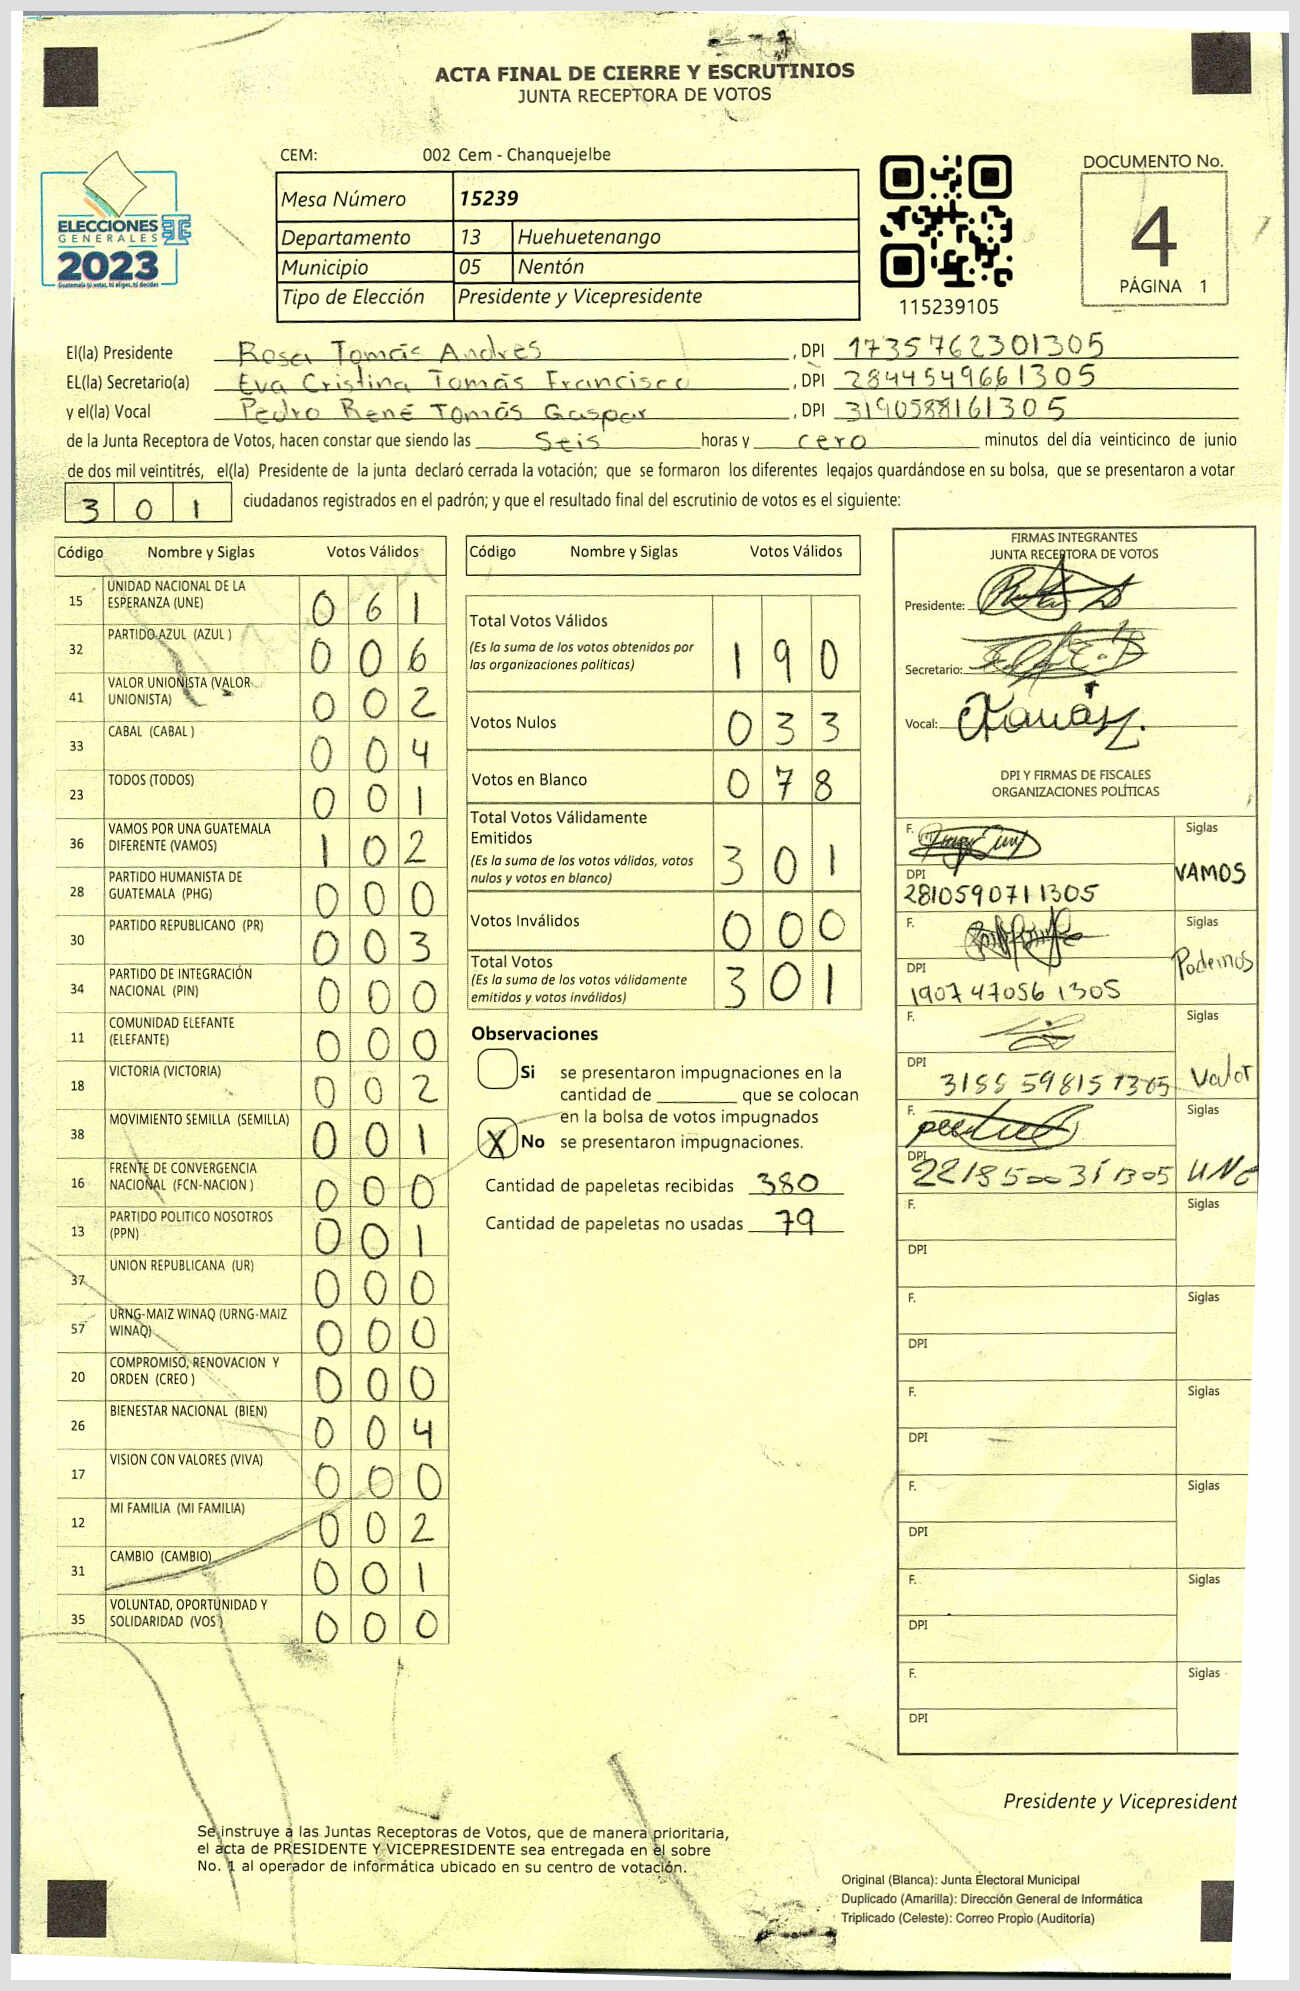 ACTA FINAL DE CIERRE Y ESCRUTINIOS
JUNTA RECEPTORA DE VOTOS
CEM: 002 Cem - Chanquejelbe
ELECCIONES
GENERALES
2023
Guatemala tú votas, tú eliges, tú decides
Mesa Número 15239
Departamento 13 Huehuetenango
Municipio 05 Nentón
Tipo de Elección Presidente y Vicepresidente
115239105
DOCUMENTO No.
4
PÁGINA 1
El(la) Presidente Rosa Tomás Andrés , DPI 1735762301305
EL(la) Secretario(a) Eva Cristina Tomás Francisco , DPI 2844549661305
y el(la) Vocal Pedro René Tomás Gaspar , DPI 3190588161305
de la Junta Receptora de Votos, hacen constar que siendo las Seis horas y cero minutos del día veinticinco de junio
de dos mil veintitrés, el(la) Presidente de la junta declaró cerrada la votación; que se formaron los diferentes legajos guardándose en su bolsa, que se presentaron a votar
3 0 1 ciudadanos registrados en el padrón; y que el resultado final del escrutinio de votos es el siguiente:
Código Nombre y Siglas Votos Válidos
15 UNIDAD NACIONAL DE LA
ESPERANZA (UNE) 0 6 1
32 PARTIDO AZUL (AZUL ) 0 0 6
41 VALOR UNIONISTA (VALOR
UNIONISTA) 0 0 2
33 CABAL (CABAL ) 0 0 4
23 TODOS (TODOS) 0 0 1
36 VAMOS POR UNA GUATEMALA
DIFERENTE (VAMOS) 1 0 2
28 PARTIDO HUMANISTA DE
GUATEMALA (PHG) 0 0 0
30 PARTIDO REPUBLICANO (PR) 0 0 3
34 PARTIDO DE INTEGRACIÓN
NACIONAL (PIN) 0 0 0
11 COMUNIDAD ELEFANTE
(ELEFANTE) 0 0 0
18 VICTORIA (VICTORIA) 0 0 2
38 MOVIMIENTO SEMILLA (SEMILLA) 0 0 1
16 FRENTE DE CONVERGENCIA
NACIONAL (FCN-NACION ) 0 0 0
13 PARTIDO POLITICO NOSOTROS
(PPN) 0 0 1
37 UNION REPUBLICANA (UR) 0 0 0
57 URNG-MAIZ WINAQ (URNG-MAIZ
WINAQ) 0 0 0
20 COMPROMISO, RENOVACION Y
ORDEN (CREO ) 0 0 0
26 BIENESTAR NACIONAL (BIEN) 0 0 4
17 VISION CON VALORES (VIVA) 0 0 0
12 MI FAMILIA (MI FAMILIA) 0 0 2
31 CAMBIO (CAMBIO) 0 0 1
35 VOLUNTAD, OPORTUNIDAD Y
SOLIDARIDAD (VOS ) 0 0 0
Código Nombre y Siglas Votos Válidos
Total Votos Válidos
(Es la suma de los votos obtenidos por
las organizaciones políticas) 1 9 0
Votos Nulos 0 3 3
Votos en Blanco 0 7 8
Total Votos Válidamente
Emitidos
(Es la suma de los votos válidos, votos
nulos y votos en blanco) 3 0 1
Votos Inválidos 0 0 0
Total Votos
(Es la suma de los votos válidamente
emitidos y votos inválidos) 3 0 1
Observaciones
Si se presentaron impugnaciones en la
cantidad de ________ que se colocan
en la bolsa de votos impugnados
X No se presentaron impugnaciones.
Cantidad de papeletas recibidas 380
Cantidad de papeletas no usadas 79
FIRMAS INTEGRANTES
JUNTA RECEPTORA DE VOTOS
Presidente:
Secretario:
Vocal:
DPI Y FIRMAS DE FISCALES
ORGANIZACIONES POLÍTICAS
F. Siglas
VAMOS
DPI
2810590711305
F. Siglas
Podemos
DPI
1907 47056 1305
F. Siglas
Valor
DPI
3155 59815 1305
F. Siglas
UNE
DPI
221850031 1305
F. Siglas
DPI
F. Siglas
DPI
F. Siglas
DPI
F. Siglas
DPI
F. Siglas
DPI
F. Siglas
DPI
Presidente y Vicepresident
Se instruye a las Juntas Receptoras de Votos, que de manera prioritaria,
el acta de PRESIDENTE Y VICEPRESIDENTE sea entregada en el sobre
No. 1 al operador de informática ubicado en su centro de votación.
Original (Blanca): Junta Electoral Municipal
Duplicado (Amarilla): Dirección General de Informática
Triplicado (Celeste): Correo Propio (Auditoría)